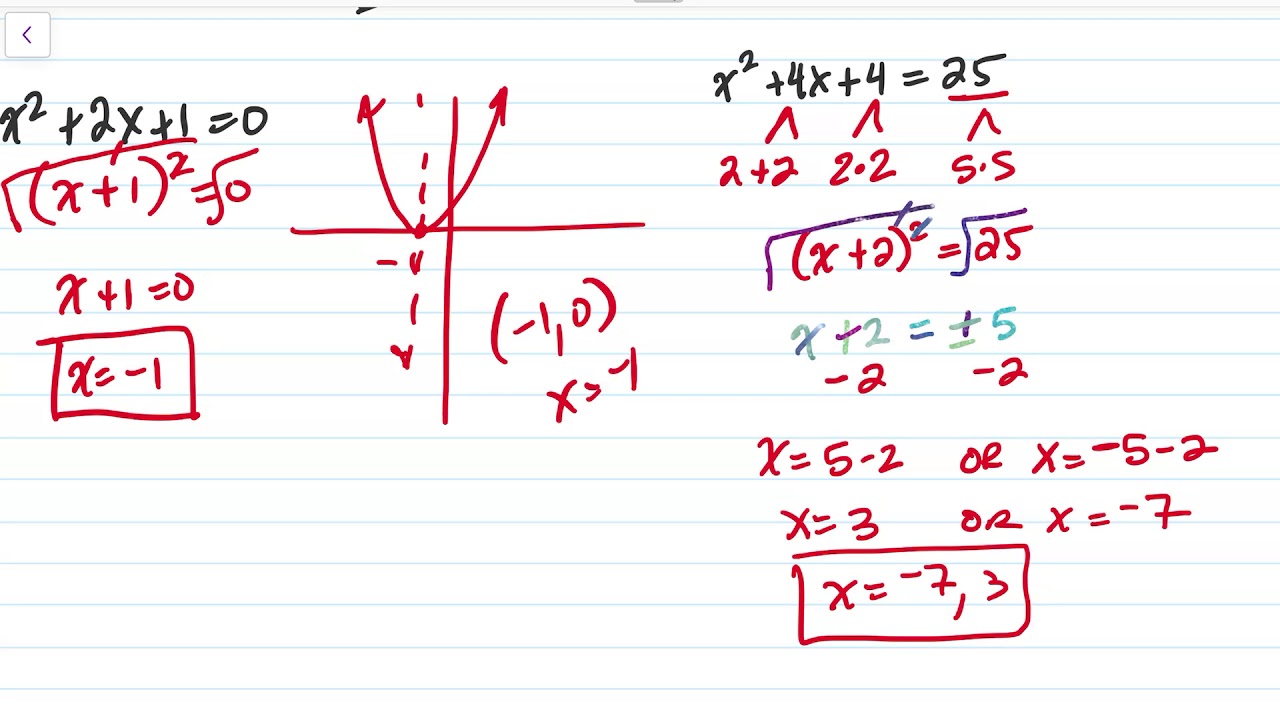 x² + 2x + 1 = 0
√(x + 1)² = √0
x + 1 = 0
x = -1
(-1, 0)
x = -1
x² + 4x + 4 = 25
2+2 2·2 5·5
√(x + 2)² = √25
x + 2 = ± 5
-2 -2
x = 5 - 2 OR x = -5 - 2
x = 3 OR x = -7
x = -7, 3